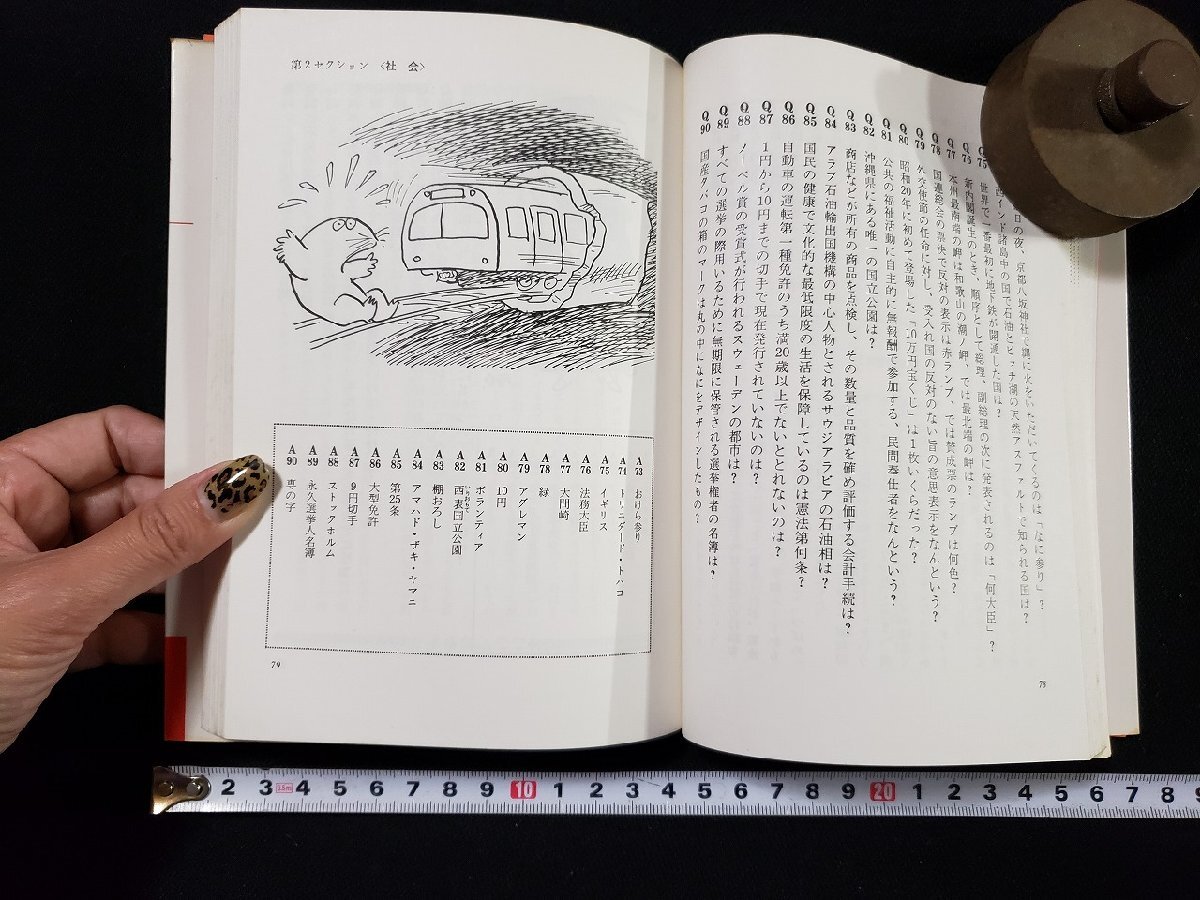 Q75
Q76
Q77
Q78
Q79
Q80
Q81
Q82
Q83
Q84
Q85
Q86
Q87
Q88
Q89
Q90
の夜、京都八坂神社で縄に火をいただいてくるのは「なに参り」？
インド諸島中の国で石油とピッチ湖の天然アスファルトで知られる国は？
世界で一番最初に地下鉄が開通した国は？
新内閣誕生のとき、順序として総理、副総理の次に発表されるのは「何大臣」？
本州最南端の岬は和歌山の潮ノ岬、では最北端の岬は？
国連総会の票決で反対の表示は赤ランプ、では賛成票のランプは何色？
外交使節の任命に対し、受入れ国の反対のない旨の意思表示をなんという？
昭和20年に初めて登場した「10万円宝くじ」は1枚いくらだった？
公共の福祉活動に自主的に無報酬で参加する、民間奉仕者をなんという？
沖縄県にある唯一の国立公園は？
商店などが所有の商品を点検し、その数量と品質を確め評価する会計手続は？
アラブ石油輸出国機構の中心人物とされるサウジアラビアの石油相は？
国民の健康で文化的な最低限度の生活を保障しているのは憲法第何条？
自動車の運転第一種免許のうち満20歳以上でないととれないのは？
1円から10円までの切手で現在発行されていないのは？
ノーベル賞の受賞式が行われるスウェーデンの都市は？
すべての選挙の際用いるために無期限に保管される選挙権者の名簿は？
国産タバコの箱のマークは丸の中になにをデザインしたもの？
75
第2セクション〈社 会〉
A73 おけら参り
A74 トリニダード・トバコ
A75 イギリス
A76 法務大臣
A77 大間崎
A78 緑
A79 アグレマン
A80 10円
A81 ボランティア
A82 西表国立公園
いりおもて
A83 棚おろし
A84 アマハド・ザキ・ヤマニ
A85 第25条
A86 大型免許
A87 9円切手
A88 ストックホルム
A89 永久選挙人名簿
A90 真の字
74
2 3 3.5m 4 5 6 7 8 9 10 1 2 3 4 5 6 7 8 9 20 1 2 3 4 5 6 7 8 9